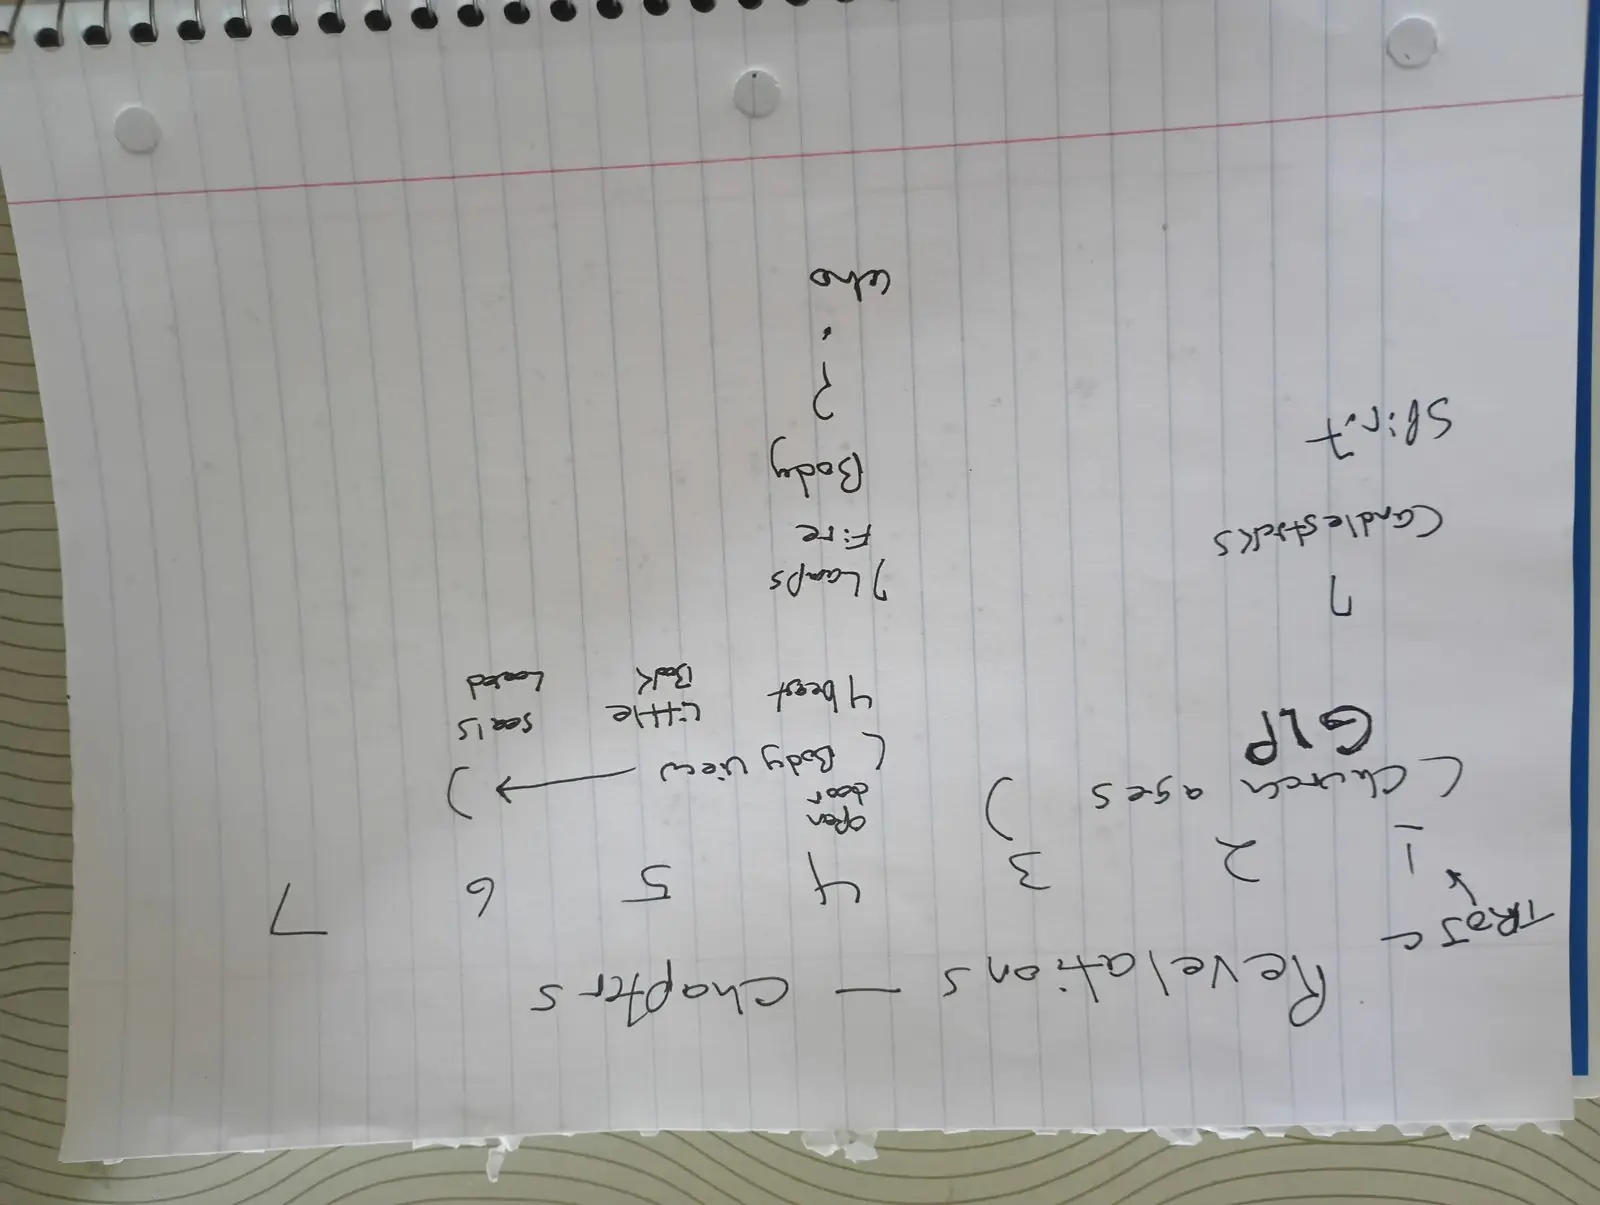 Revelations — Chapters
TROJC
1 2 3 4 5 6 7
open
door
(Church ages ) (Body view → )
GLP
4 beast Little Book seals Loosed
7 7 Lamps
Candlesticks Fire
Spirit Body
?
who